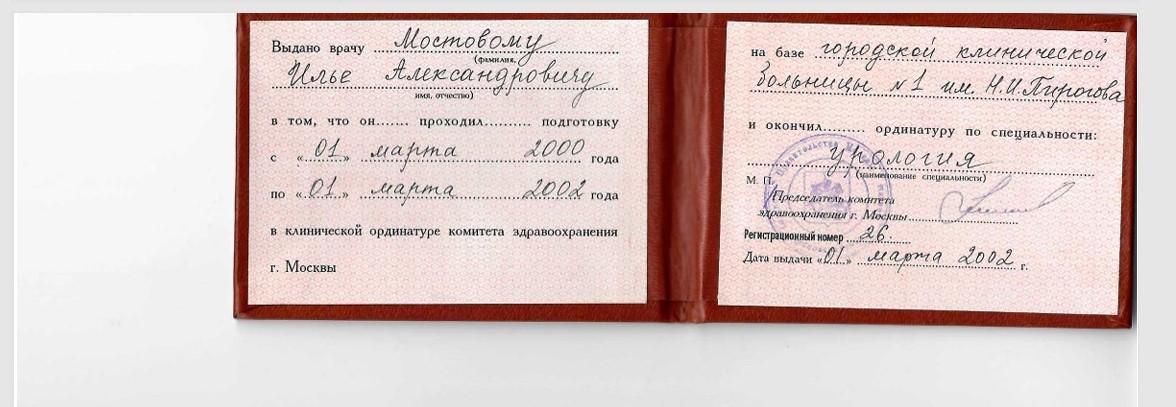 Выдано врачу Мостовому
(фамилия,
Илье Александровичу
имя, отчество)
в том, что он....... проходил.......... подготовку
с «01» марта 2000 года
по «01» марта 2002 года
в клинической ординатуре комитета здравоохранения
г. Москвы
на базе городской клинической
больницы №1 им. Н.И.Пирогова
и окончил......... ординатуру по специальности:
урология
(наименование специальности)
М. П.
Председатель комитета
здравоохранения г. Москвы
Регистрационный номер 26.
Дата выдачи «01» марта 2002 г.